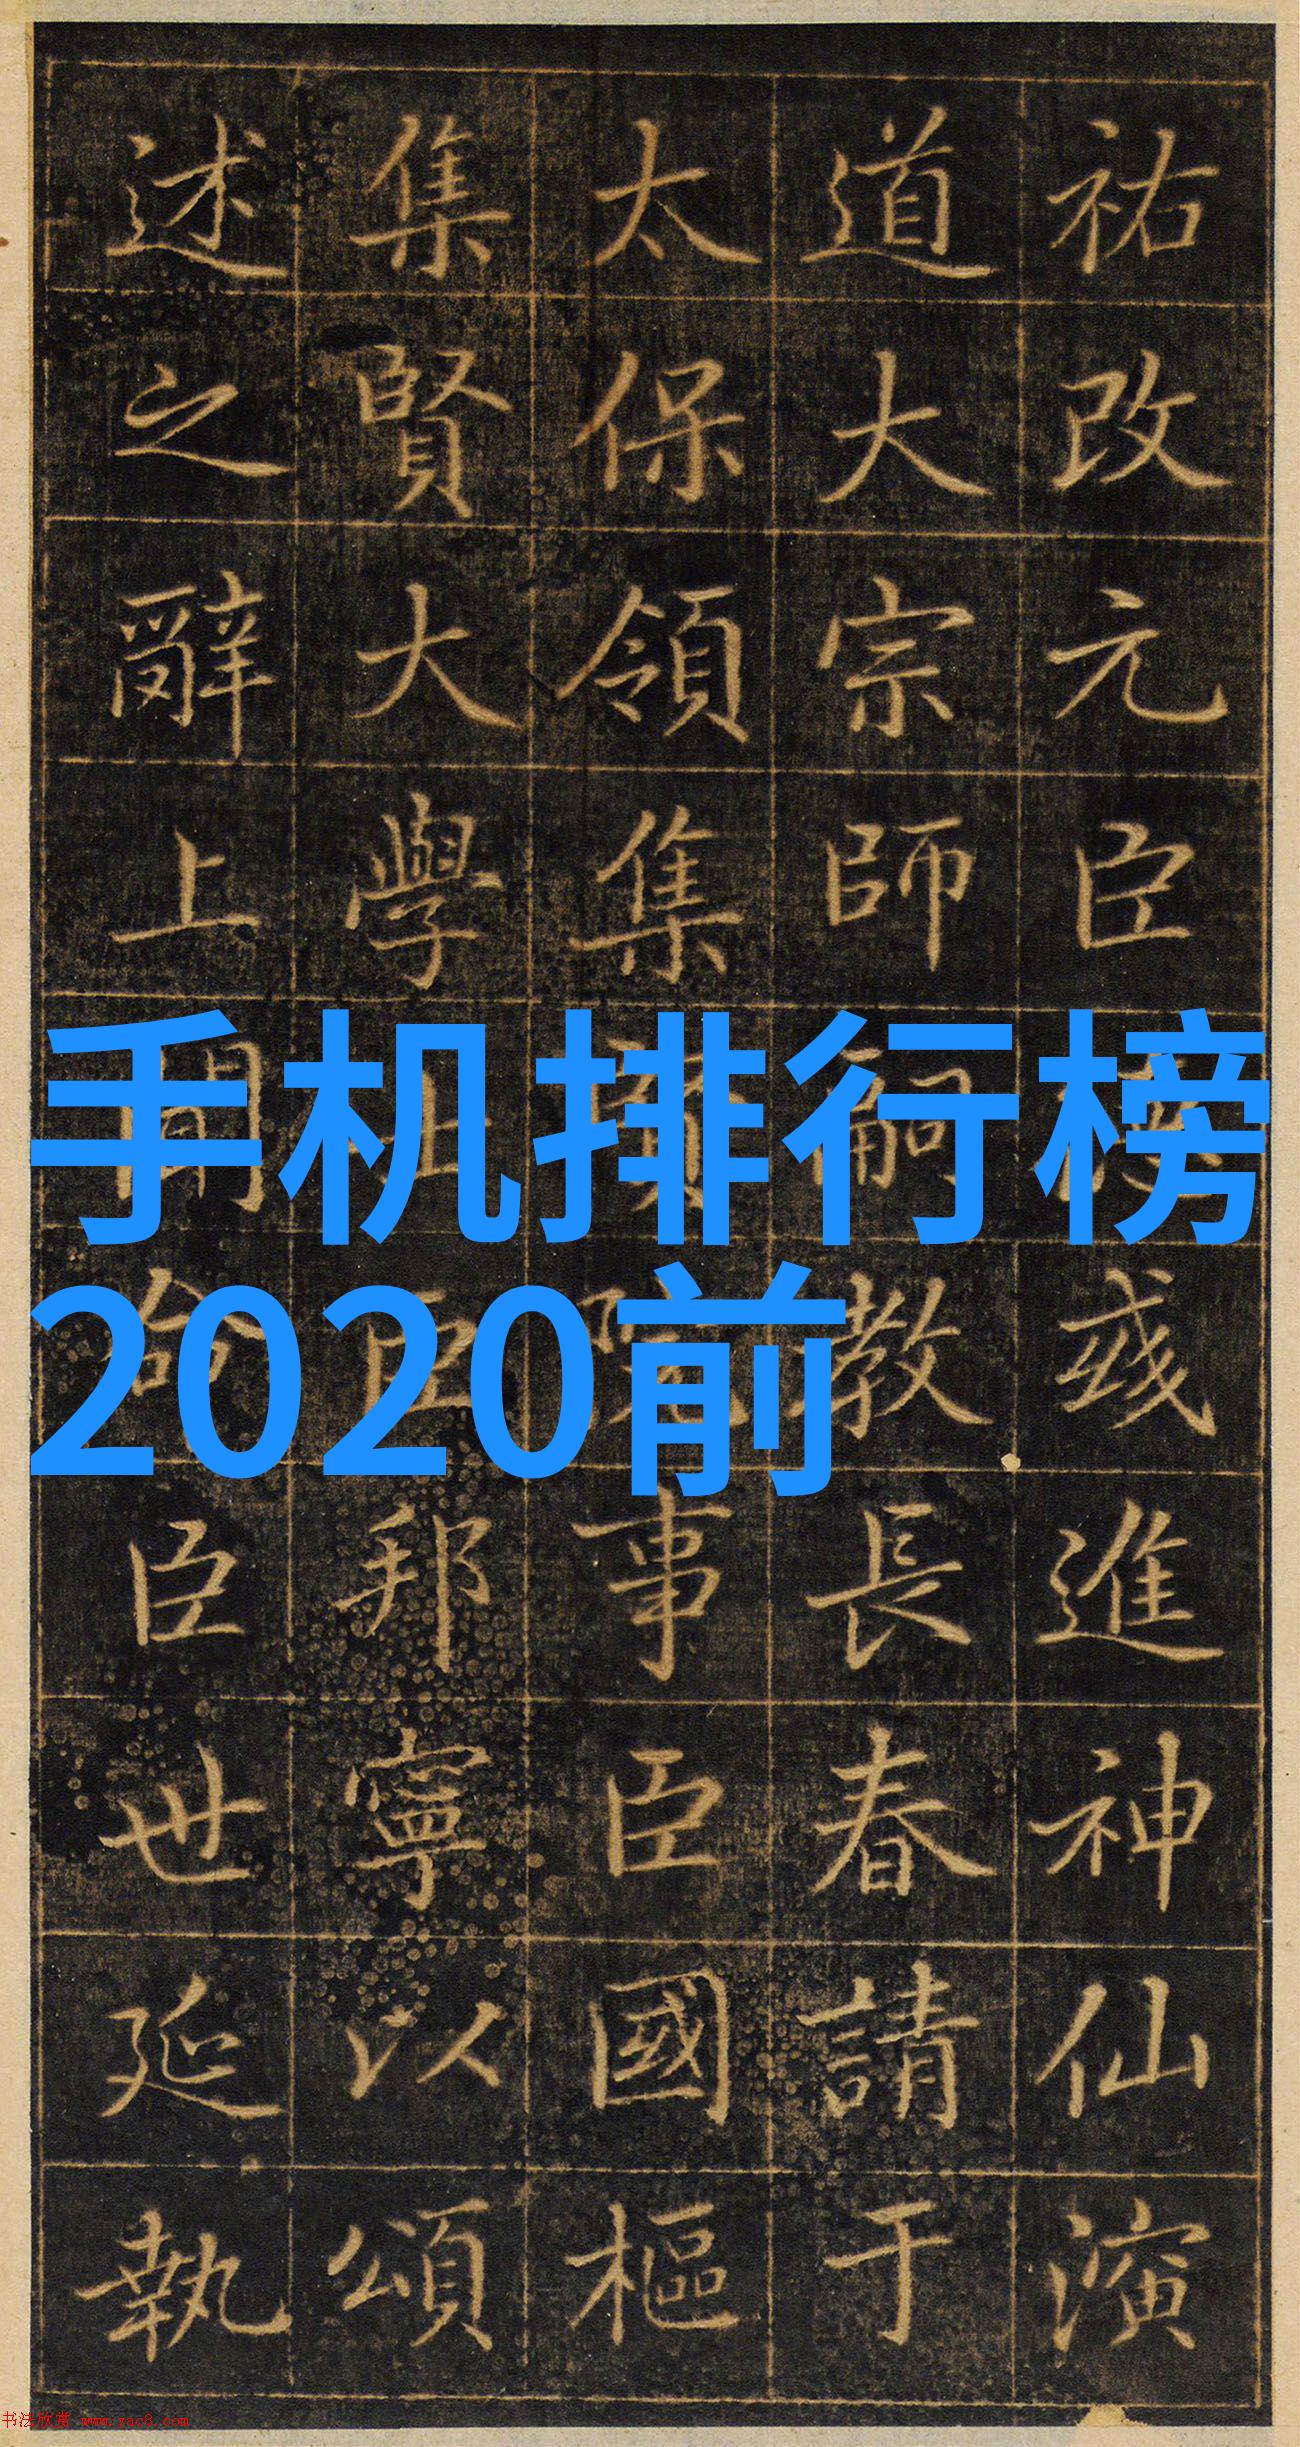 祐改元臣彧進神仙演
道大宗師嗣教長春請于
太保領集賢院事臣國樞
集賢大學士臣邦寧以頌
述之辭上聞詔臣世延執
手机排行榜
2020前
书法欣赏 www.yac8.com